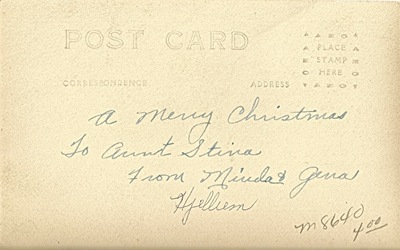 POST CARD
AZO
PLACE
STAMP
HERE
AZO
CORRESPONDENCE
ADDRESS
A Merry Christmas
To Aunt Stina
From Minda & Gena
Hjellum
M8640
4.00